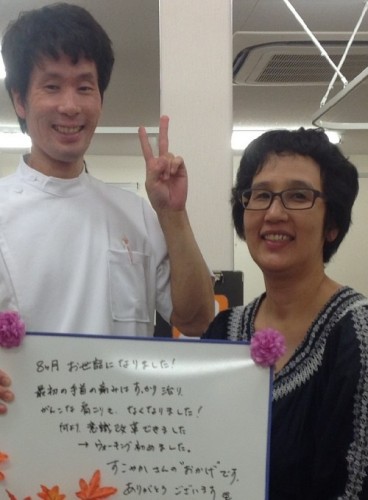 8ヶ月 お世話になりました!
最初の手首の痛みはすっかり治り
がんこな肩こりも、なくなりました!
何より意識改革できました
→ウォーキング初めました。
すこやかしさんの"おかげ"です。
ありがとう ございます